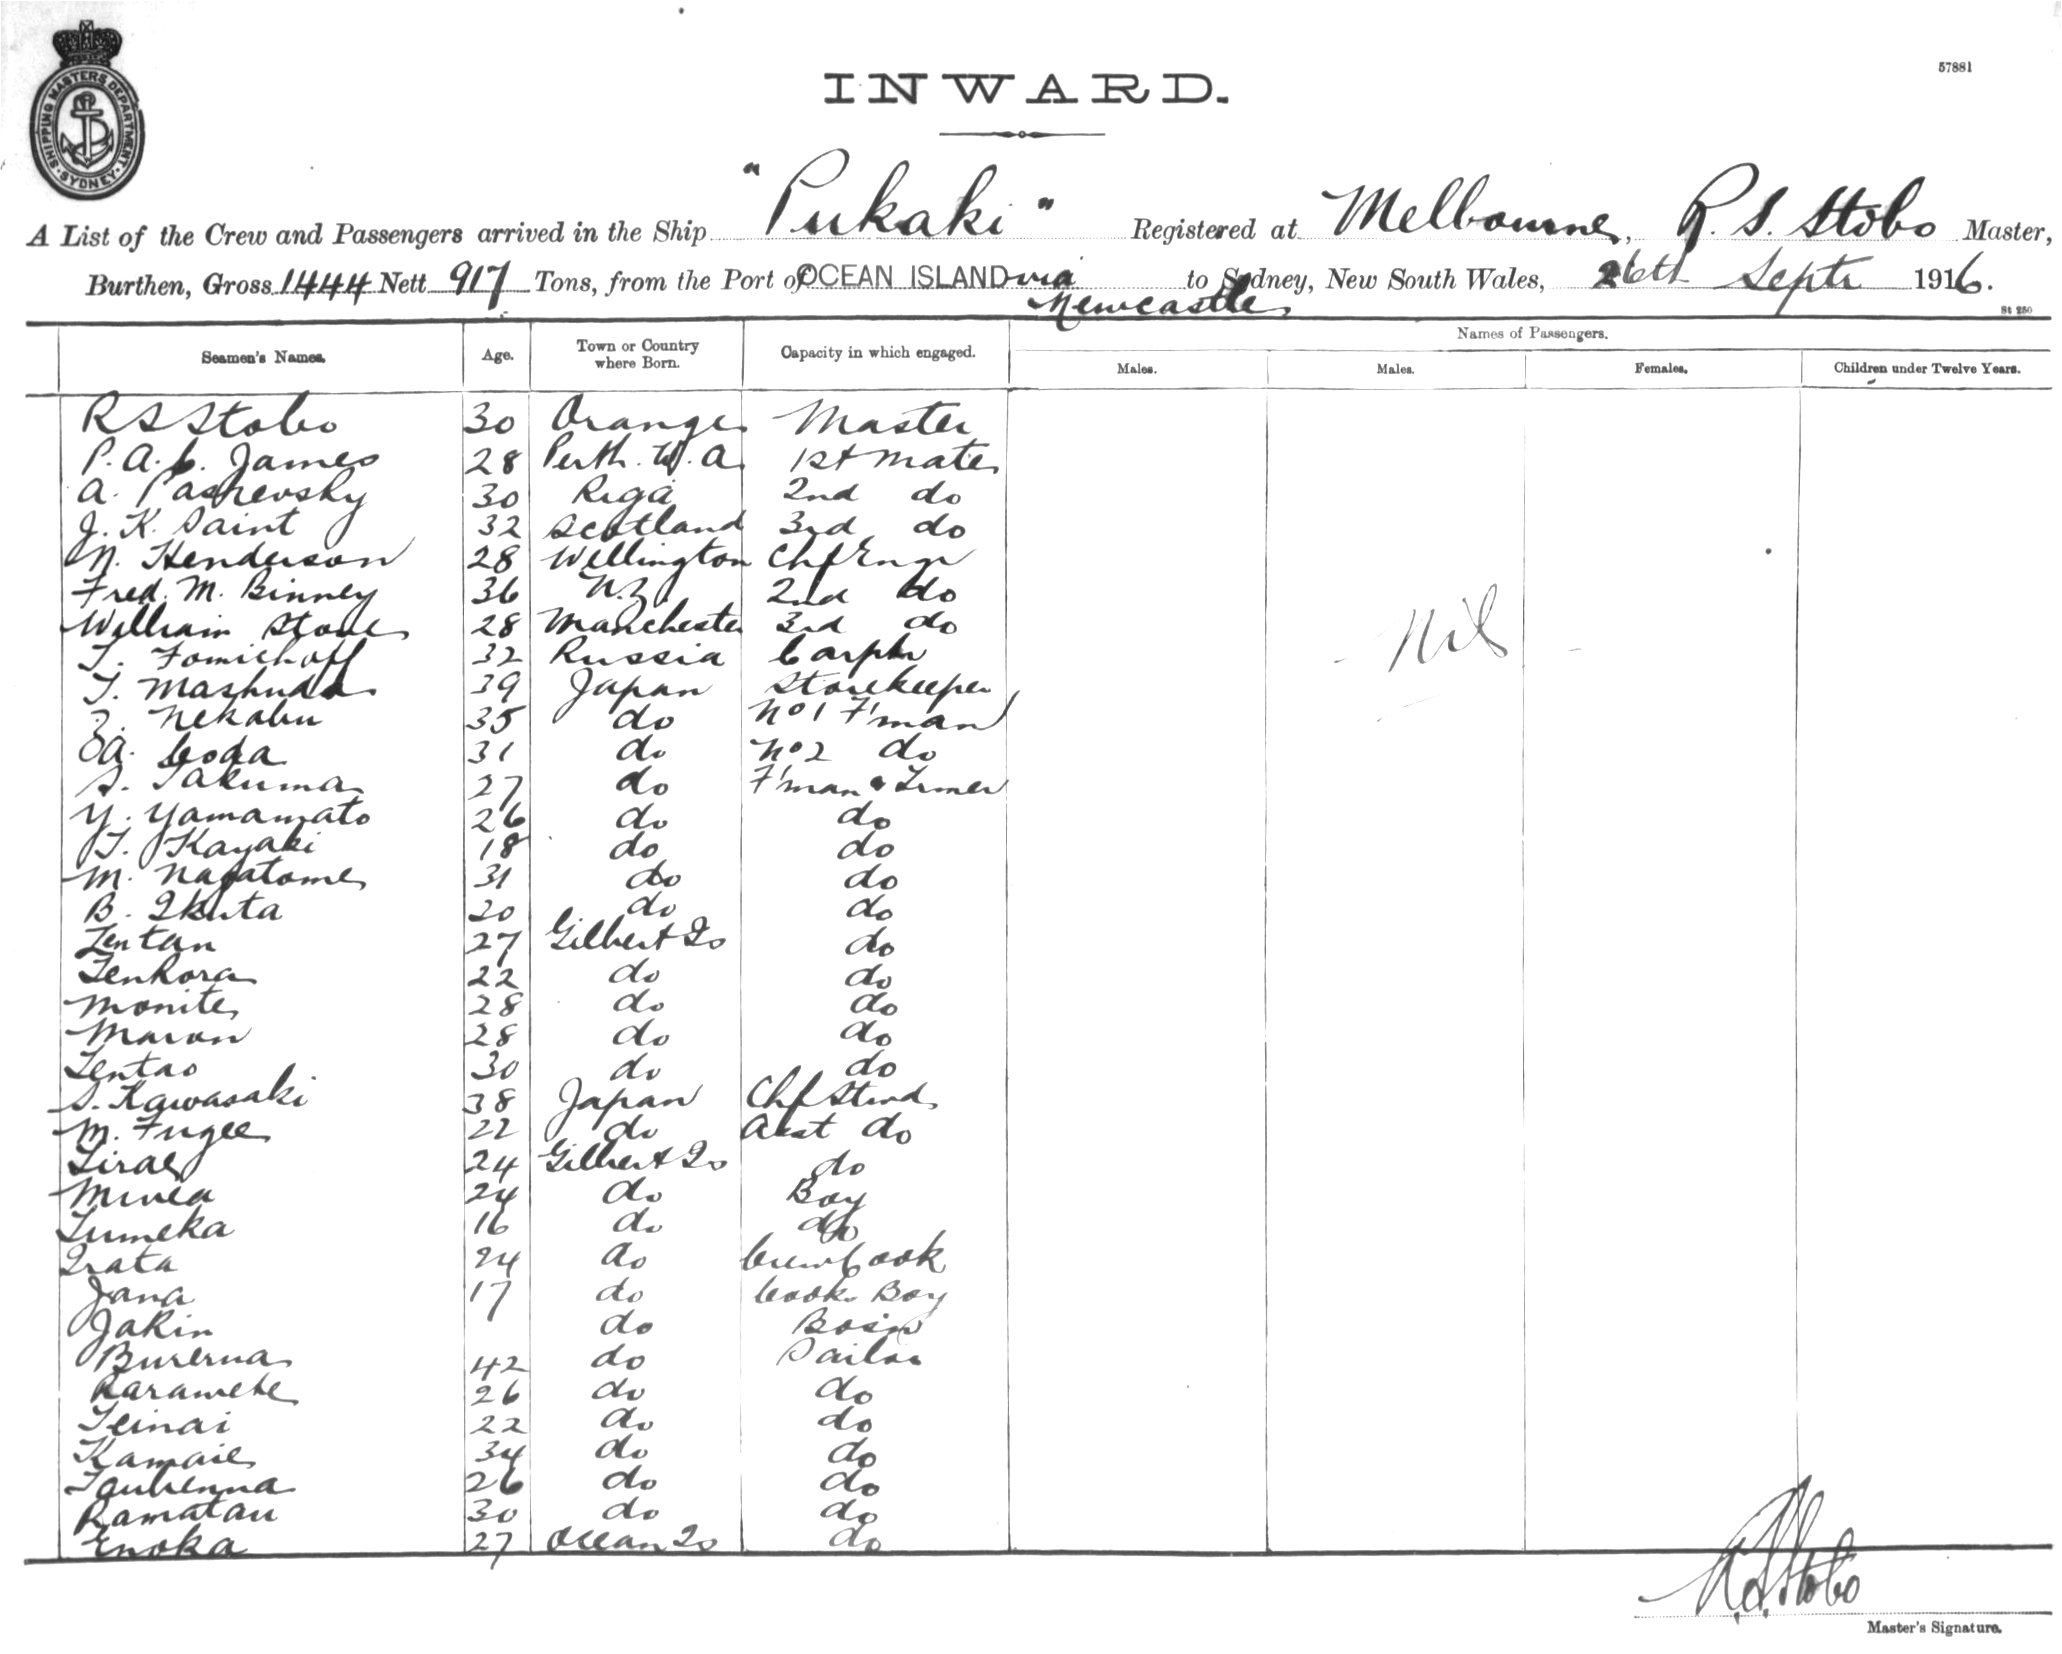 57881
SHIPPING MASTERS DEPARTMENT SYDNEY
INWARD.
A List of the Crew and Passengers arrived in the Ship "Pukaki" Registered at Melbourne, R. S. Stobo Master,
Burthen, Gross 1444 Nett 917 Tons, from the Port of OCEAN ISLAND via Newcastle to Sydney, New South Wales, 26th Septr 1916.
St 250
Seamen's Names. Age. Town or Country where Born. Capacity in which engaged. Names of Passengers.
Males. Males. Females. Children under Twelve Years.
R S Stobo 30 Orange Master
P. A. C. James 28 Perth. W. A. 1st Mate
A. Pashevsky 30 Riga 2nd do
J. K. Saint 32 Scotland 3rd do
N. Henderson 28 Wellington Chf Engr
Fred. M. Binney 36 N.Z. 2nd do
William Stone 28 Manchester 3rd do
T. Fomichoff 32 Russia Carptr
T. Mashuda 39 Japan Storekeeper
Z. Nekabu 35 do No 1 F'man
A. Coda 31 do No 2 do
S. Takuma 27 do F'man & Trmer
Y. Yamamato 26 do do
T. Kayaki 18 do do
M. Nagatome 31 do do
B. Ikuta 20 do do
Tentan 27 Gilbert Is do
Tenkora 22 do do
Monite 28 do do
Maran 28 do do
Tentao 30 do do
S. Kawasaki 38 Japan Chf Stwd
M. Fugee 22 do Asst do
Tirae 24 Gilbert Is do
Minea 24 do Boy
Tumeka 16 do do
Irata 24 do Crew Cook
Jana 17 do Cooks Boy
Jakin do Bosin
Burerua 42 do Sailor
26 do do
Teinai 22 do do
Kamaie 34 do do
26 do do
Ramatau 30 do do
Enoka 27 Ocean Is do
Nil
R. S. Stobo
Master's Signature.